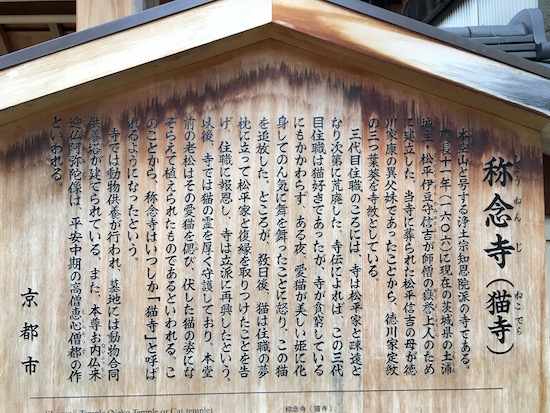 称念寺(猫寺)
しょうねんじ
ねこでら
本空山と号する浄土宗知恩院派の寺である。
慶長十一年(一六〇六)に現在の茨城県の土浦
城主・松平伊豆守信吉が師僧の嶽誉上人のため
に建立した。当寺に葬られた松平信吉の母が徳
川家康の異父妹であったことから、徳川家定紋
の三つ葉葵を寺紋としている。
三代目住職のころには、寺は松平家と疎遠と
なり次第に荒廃した。寺伝によれば、この三代
目住職は猫好きであったが、寺が貧窮している
にもかかわらず、ある夜、愛猫が美しい姫に化
身してのん気に舞を舞ったことに怒り、この猫
を追放した。ところが、数日後、猫は住職の夢
枕に立って松平家と復縁を取りつけたことを告
げ、住職に報恩し、寺は立派に再興したという。
以後、寺では猫の霊を厚く守護しており、本堂
前の老松はその愛猫を偲び、伏した猫の姿にな
ぞらえて植えられたものであるといわれる。こ
のことから、称念寺はいつしか「猫寺」と呼ば
れるようになったという。
寺では動物供養が行われ、墓地には動物合同
供養塔が建てられている。また、本尊お内仏米
迎仏阿弥陀像は、平安中期の高僧恵心僧都の作
といわれる。
京都市
Temple (Neko Temple or Cat temple)
称念寺(猫寺)